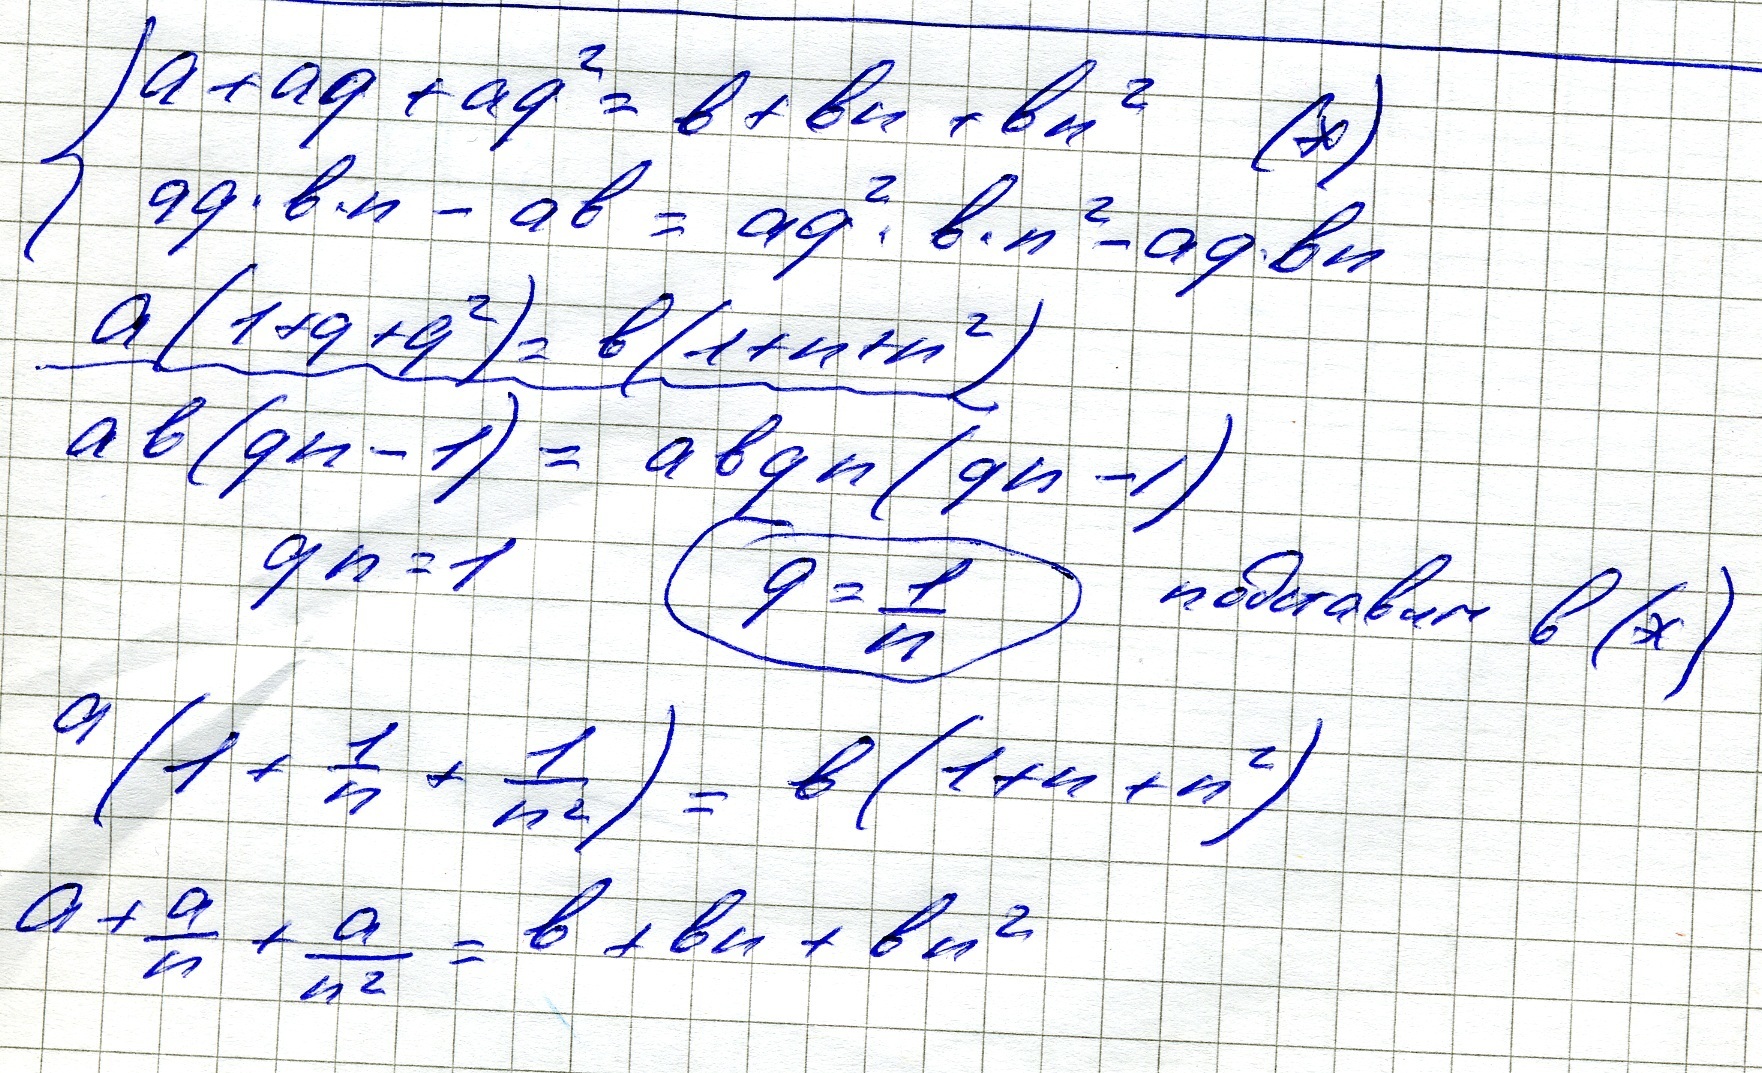 { a + aq + aq² = в + вn + вn² (*)
aq · в · n - aв = aq² · в · n² - aq · вn
a(1+q+q²) = в(1+n+n²)
aв(qn - 1) = aвqn(qn - 1)
qn = 1 q = 1/n подставим в (*)
a(1 + 1/n + 1/n²) = в(1+n+n²)
a + a/n + a/n² = в + вn + вn²